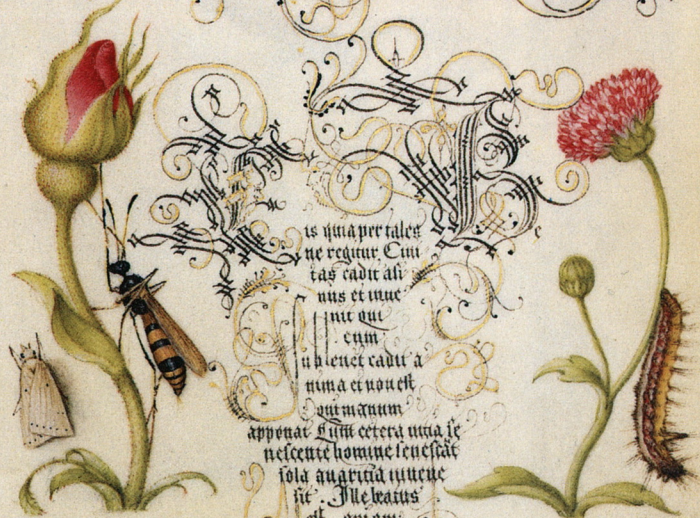 is quia per tales
ne regitur. Ciui
tas cadit asi
nus et inue
nit qui
eum
subleuet cadit a
nima et non est
qui manum
apponat Cum cetera uitia se
nescente homine senescat
sola auaritia iuuene
sit. Ille beatus
est